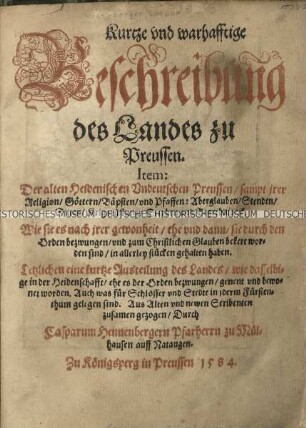 Kurtze vnd warhafftige
Beschreibung
des Landes zu
Preussen.
Item:
Der alten Heidenischen Vndeutschen Preussen / sampt jrer
Religion / Göttern / Bäpsten / vnd Pfaffen: Aberglauben / Stenden /
HISTORISCHES MUSEUM DEUTSCHES HISTORISCHES MUSEUM
Wie sie es nach jrer gewonheit / ehe vnd dann / sie durch den
Orden bezwungen / vnd zum Christlichen Glauben bekert wor-
den sind / in allerley stücken gehalten haben.
Letzlichen eine kurtze Austeilung des Landes / wie dasselbi-
ge in der Heidenschafft / ehe es der Orden bezwungen / genent vnd bewo-
net worden, Auch was für Schlösser vnd Stedte in jederm Fürsten-
thum gelegen sind. Aus Alten vnd newen Scribenten
zusamen gezogen / Durch
Casparum Hennenbergern Pfarherrn zu Mül-
hausen auff Natangen.
Zu Königsperg in Preussen 1584.